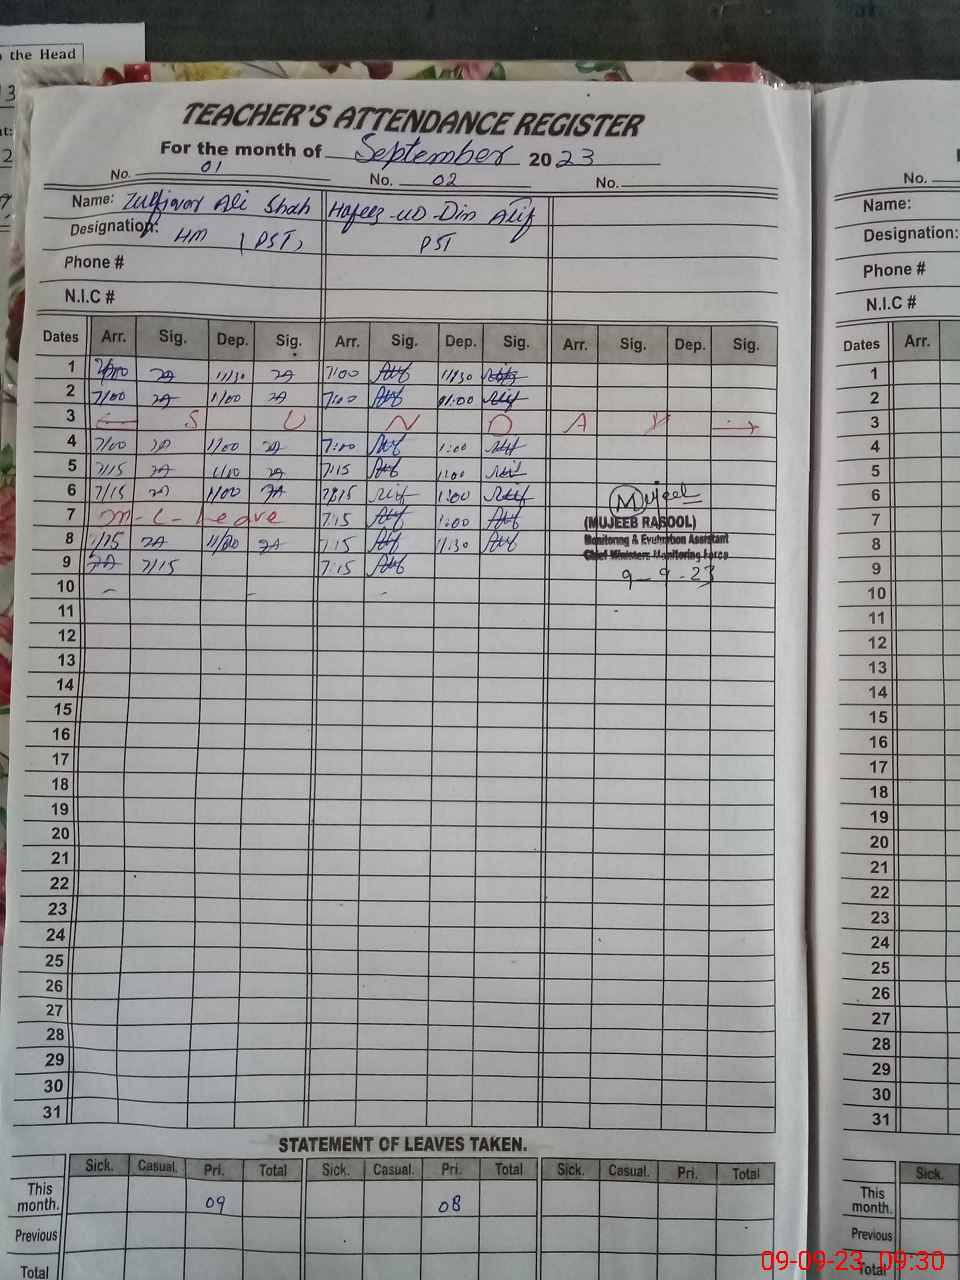 the Head
TEACHER'S ATTENDANCE REGISTER
For the month of September 2023
No. 01 No. 02 No.
Name: Zulfiqar Ali Shah Hafeez-UD-Din Alif
Designation: HM (PST) PST
Phone #
N.I.C #
Dates Arr. Sig. Dep. Sig. Arr. Sig. Dep. Sig. Arr. Sig. Dep. Sig.
1 7/00 11/30 7:00 11:30
2 7/00 1/00 7:00 01:00
3 S U N D A Y
4 7/00 1/00 7:00 1:00
5 7/15 7:15 1:00
6 7/15 1/00 7:15 1:00
7 Leave 7:15 1:00
8 7/15 7:15 11:30
9 7/15 7:15
10
11
12
13
14
15
16
17
18
19
20
21
22
23
24
25
26
27
28
29
30
31
Mujeeb
(MUJEEB RASOOL)
Monitoring & Evaluation Assistant
Chief Ministers Monitoring Force
9-9-23
STATEMENT OF LEAVES TAKEN.
Sick. Casual. Pri. Total Sick. Casual. Pri. Total Sick. Casual. Pri. Total
This month. 09 08
Previous
Total
No.
Name:
Designation:
Phone #
N.I.C #
Dates Arr.
1
2
3
4
5
6
7
8
9
10
11
12
13
14
15
16
17
18
19
20
21
22
23
24
25
26
27
28
29
30
31
Sick.
This month.
Previous
Total
09-09-23 09:30